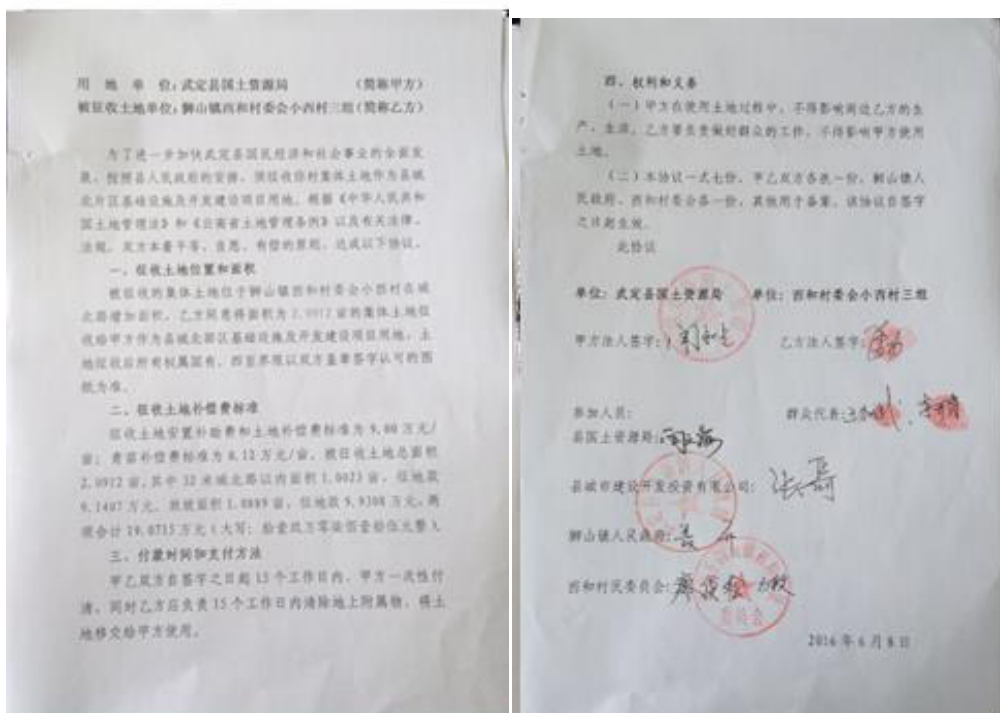 用地单位：武定县国土资源局 （简称甲方）
被征收土地单位：狮山镇西和村委会小西村三组（简称乙方）
为了进一步加快武定县国民经济和社会事业的全面发
展，按照县人民政府的安排，须征收你村集体土地作为县城
北片区基础设施及开发建设项目用地，根据《中华人民共和
国土地管理法》和《云南省土地管理条例》以及有关法律、
法规，双方本着平等、自愿、有偿的原则，达成以下协议。
一、征收土地位置和面积
被征收的集体土地位于狮山镇西和村委会小西村在城
北路增加面积，乙方同意将面积为2.0912亩的集体土地征
收给甲方作为县城北部区基础设施及开发建设项目用地，土
地征收后所有权属国有，四至界限以双方盖章签字认可的图
纸为准。
二、征收土地补偿费标准
征收土地安置补助费和土地补偿费标准为9.00万元/
亩；青苗补偿费标准为0.12万元/亩，被征收土地总面积
2.0912亩，其中32米城北路以内面积1.0023亩，征地款
9.1407万元，放坡面积1.0889亩，征地款9.9308万元，两
项合计19.0715万元（大写：拾壹玖万零柒佰壹拾伍元整）。
三、付款时间和支付方法
甲乙双方自签字之日起15个工作日内，甲方一次性付
清，同时乙方应负责15个工作日内清除地上附属物，将土
地移交给甲方使用。
四、权利和义务
（一）甲方在使用土地过程中，不得影响周边乙方的生
产、生活，乙方要负责做好群众的工作，不得影响甲方使用
土地。
（二）本协议一式七份，甲乙双方各执一份，狮山镇人
民政府、西和村委会各一份，其他用于备案，该协议自签字
之日起生效。
此协议
单位：武定县国土资源局 单位：西和村委会小西村三组
甲方法人签字： 乙方法人签字：
参加人员： 群众代表：
县国土资源局：
县城市建设开发投资有限公司：
狮山镇人民政府：
西和村民委员会：
2016年6月8日